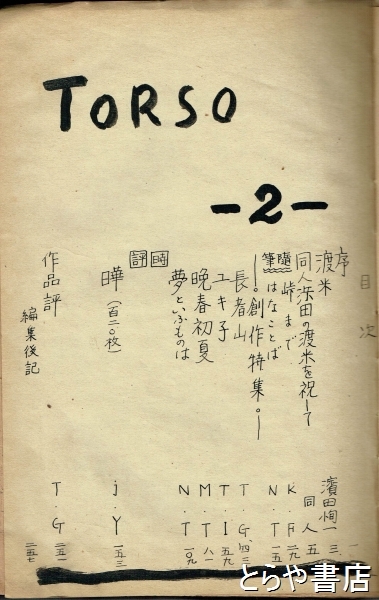 TORSO
-2-
目次
序 一
渡米 濱田恂一 三
同人浜田の渡米を祝して 同人 五
隨筆
峠まで K・A 一九
はなことば N・T 一五
―。創作特集。―
長者山 T・G 四三
ユキ子 T・I 五九
晩春初夏 M・T 八一
夢といふものは N・T 一〇九
時評
曄(百二〇枚) j・Y 一五三
作品評 T・G 二五一
編集後記 二五七
とらや書店